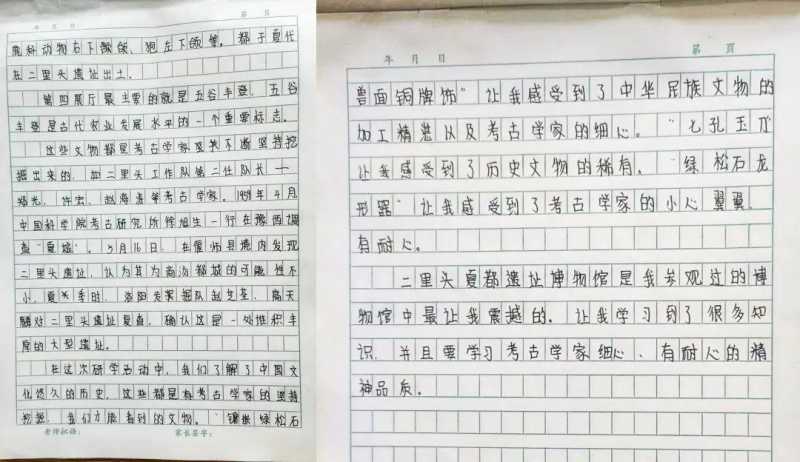 年 月 日 第 页
鹿科动物右下颌骨、狍左下颌骨。都于夏代
在二里头遗址出土。
第四展厅最主要的就是五谷丰登。五谷
丰登是古代农业发展水平的一个重要标志。
这些文物都是考古学家及其不断坚持挖
掘出来的。如二里头工作队第二任队长一
郑光、许宏、赵海涛等考古学家。1959年4月
中国科学院考古研究所徐旭生一行在豫西调
查"夏墟"。5月16日,在偃师县境内发现
二里头遗址,认为其为商汤都城的可能性不
小。夏季时,洛阳发掘队赵芝荃、高天
麟对二里头遗址复查,确认这是一处堆积丰
厚的大型遗址。
在这次研学活动中,我们了解了中国文
化悠久的历史,这些都是有考古学家的坚持
挖掘,我们才能看到的文物。"镶嵌绿松石
老师批语: 家长签字:
年 月 日 第 页
兽面铜牌饰"让我感受到了中华民族文物的
加工精美以及考古学家的细心。"七孔玉刀
让我感受到了历史文物的稀有。"绿松石龙
形器"让我感受到了考古学家的小心翼翼、
有耐心。
二里头夏都遗址博物馆是我参观过的博
物馆中最让我震撼的。让我学习到了很多知
识,并且要学习考古学家细心、有耐心的精
神品质。